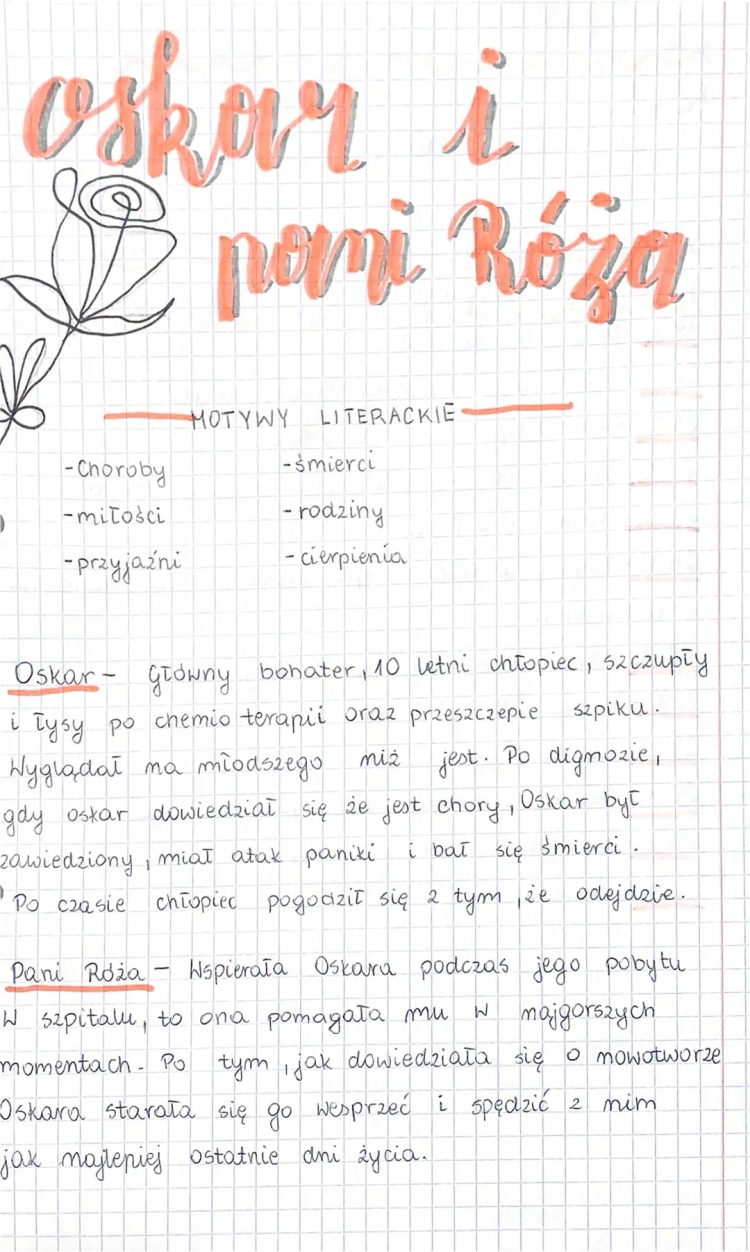 oskar i
pani Róża
MOTYWY LITERACKIE
-Choroby -śmierci
-miłości -rodziny
-przyjaźni -cierpienia
Oskar- Główny bohater, 10 letni chłopiec, szczupły
i łysy po chemio terapii oraz przeszczepie szpiku.
Wyglądał na młodszego niż jest. Po digmozie,
gdy oskar dowiedział się że jest chory, Oskar był
zawiedziony, miał atak paniki i bał się śmierci.
Po czasie chłopiec pogodził się z tym, że odejdzie.
Pani Róża - Wspierała Oskara podczas jego pobytu
W szpitalu, to ona pomagała mu w najgorszych
momentach. Po tym, jak dowiedziała się o nowotworze
Oskara starała się go wesprzeć i spędzić z nim
jak najlepiej ostatnie dni życia.